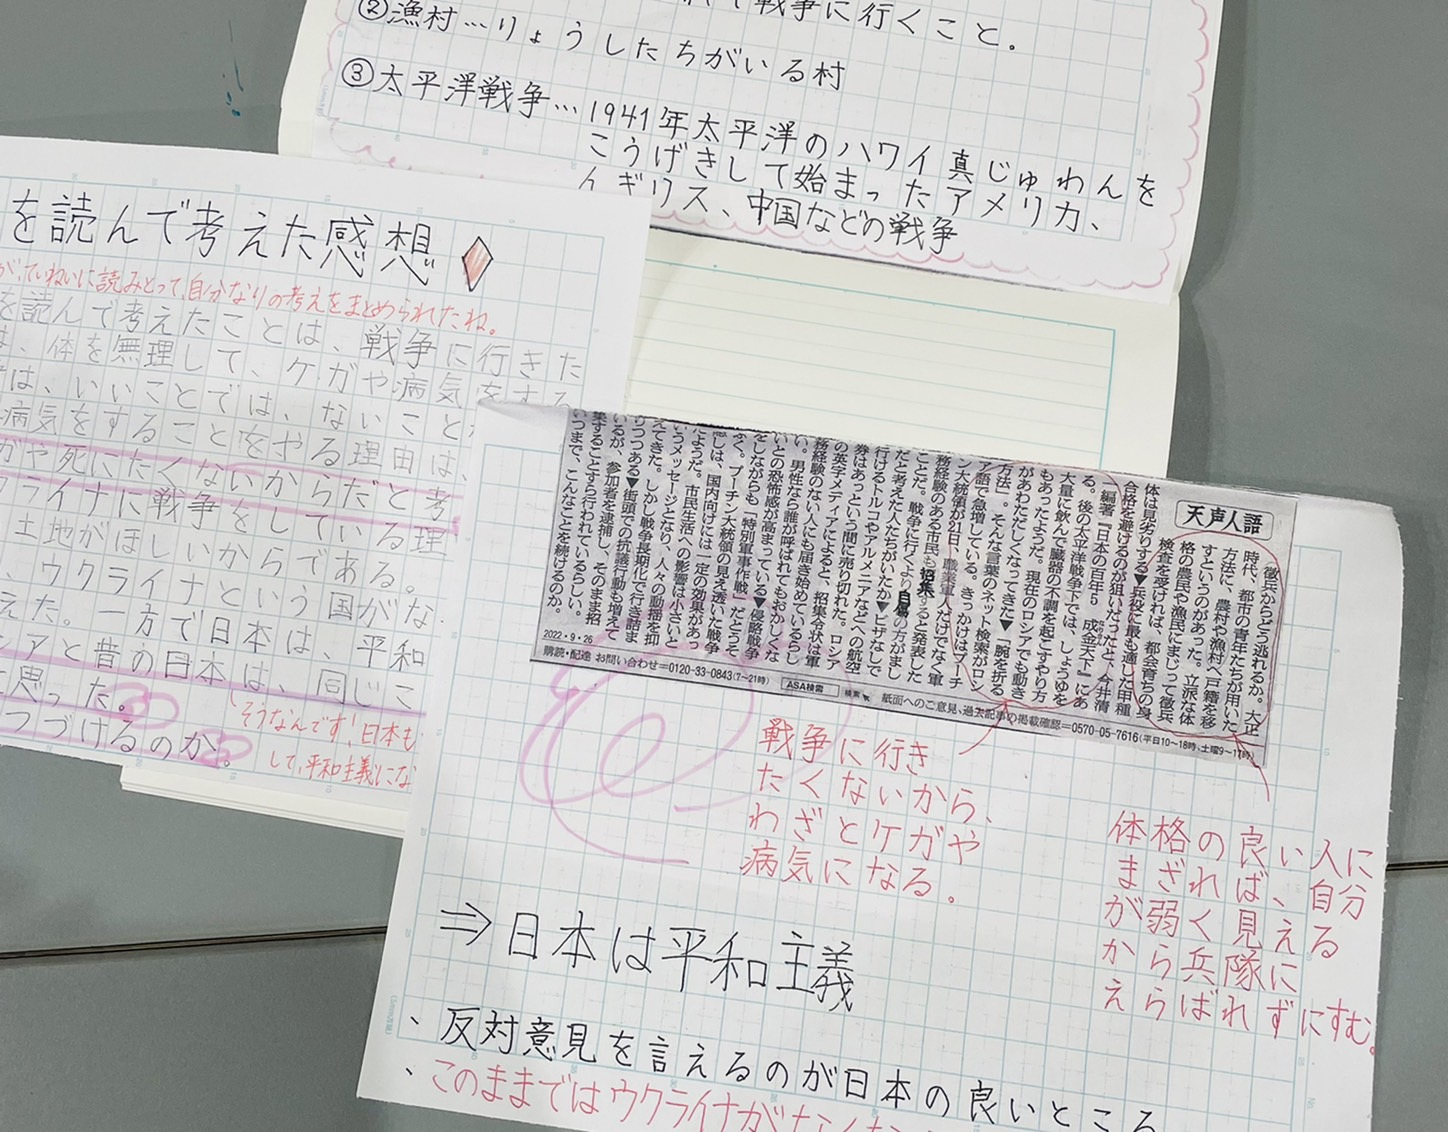 て戦争に行くこと。
②漁村…りょうしたちがいる村
③太平洋戦争…1941年太平洋のハワイ真じゅわんを
こうげきして始まったアメリカ、
イギリス、中国などの戦争
を読んで考えた感想
が、ていねいに読みとって、自分なりの考えをまとめられたね。
を読んで考えたことは、戦争に行きた
は、体を無理して、ケガや病気をする
は、いいことでは、ないこと
病気をすることをやる理由は、
がや死にたくないからだと考
クライナに戦争をしている理
土地がほしいからである。
、ウクライナという国がな
えた。一方で日本は、平和
シアと昔の日本は、同じこ
と思った。
つづけるのか。
そうなんです!日本も
して、平和主義にな
天声人語
徴兵からどう逃れるか。大正
時代、都市の青年たちが用いた
方法に、農村や漁村へ戸籍を移
すというのがあった。立派な体
格の農民や漁民にまじって徴兵
検査を受ければ、都会育ちの身
体は見劣りする▼兵役に最も適した甲種
合格を避けるのが狙いだったと、今井清
一編著『日本の百年5 成金天下』にあ
る。後の太平洋戦争下では、しょうゆを
大量に飲んで臓器の不調を起こすやり方
もあったようだ。現在のロシアでも動き
があわただしくなってきた▼「腕を折る
方法」。そんな言葉のネット検索がロシ
ア語で急増している。きっかけはプーチ
ン大統領が21日、職業軍人だけでなく軍
務経験のある市民も招集すると発表した
ことだ。戦争に行くより自傷の方がまし
だと考えた人たちがいたか▼ビザなしで
行けるトルコやアルメニアなどへの航空
券はあっという間に売り切れた。ロシア
の英字メディアによると、招集令状は軍
務経験のない人にも届き始めているらし
い。男性なら誰が呼ばれてもおかしくな
いとの恐怖感が高まっている▼侵略戦争
をしながらも「特別軍事作戦」だとうそ
ぶく。プーチン大統領の見え透いた戦争
隠しは、国内向けには一定の効果があっ
たようだ。市民生活への影響は小さいと
いうメッセージとなり、人々の動揺を抑
えてきた。しかし戦争長期化で行き詰ま
りつつある▼街頭での抗議行動も増えて
いるが、参加者を逮捕し、そのまま招
集することすら行われているらしい。
いつまで、こんなことを続けるのか。
2022・9・26
購読・配達 お問い合わせ=0120-33-0843(7~21時) ASA検索 検索 紙面へのご意見、過去記事の掲載確認=0570-05-7616(平日10~18時、土曜9~17時)
戦争に行き
たくないから、
わざとケガや
病気になる。
体格の良い人に
まざれば、自分
が弱く見える
から兵隊に
えらばれずにすむ。
⇒日本は平和主義
、反対意見を言えるのが日本の良いところ
、このままではウクライナがなくな